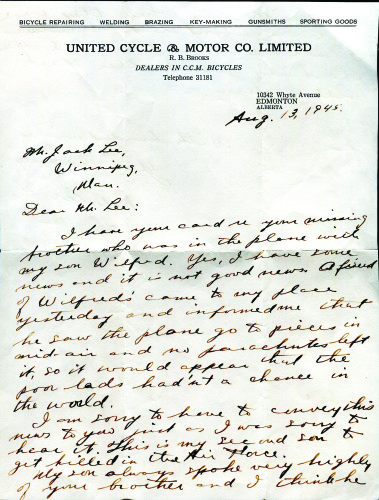 BICYCLE REPAIRING WELDING BRAZING KEY-MAKING GUNSMITHS SPORTING GOODS
UNITED CYCLE & MOTOR CO. LIMITED
R. B. BROOKS
DEALERS IN C.C.M. BICYCLES
Telephone 31181
10342 Whyte Avenue
EDMONTON
ALBERTA
Aug. 13, 1945.
Mr. Jack Lee,
Winnipeg,
Man.
Dear Mr. Lee:
I have your card re your missing
brother who was in the plane with
my son Wilfred. Yes, I have some
news and it is not good news. A friend
of Wilfreds came to my place
yesterday and informed me that
he saw the plane go to pieces in
mid-air and no parachutes left
it, so it would appear that the
poor lads hadn't a chance in
the world.
I am sorry to have to convey this
news to you just as I was sorry to
hear it. This is my second son to
get killed in the Air Force.
My son always spoke very highly
of your brother and I think he